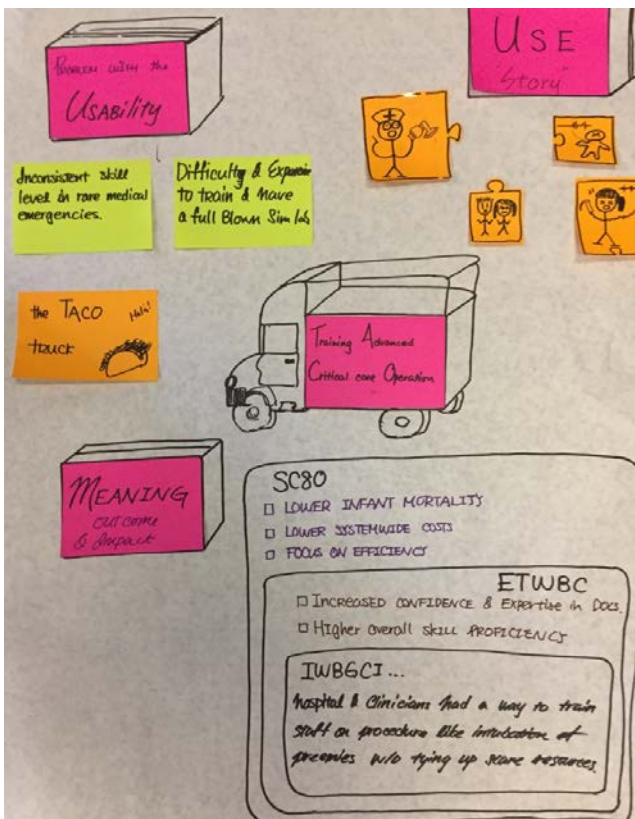 PROBLEM WITH the
USABILITY
USE
"Story"
Inconsistent skill
level in rare medical
emergencies.
Difficulty & Expensive
to train & have
a full Blown Sim lab
the TACO
truck
Training Advanced
Critical care Operation
MEANING
outcome
& Impact
SC80
LOWER INFANT MORTALITY
LOWER SYSTEMWIDE COSTS
FOCUS ON EFFICIENCY
ETWBC
INCREASED CONFIDENCE & Expertise in Docs.
Higher overall skill PROFICIENCY
IWBGCI...
hospital & Clinicians had a way to train
staff on procedure like intubation of
preemies w/o tying up scare resources.